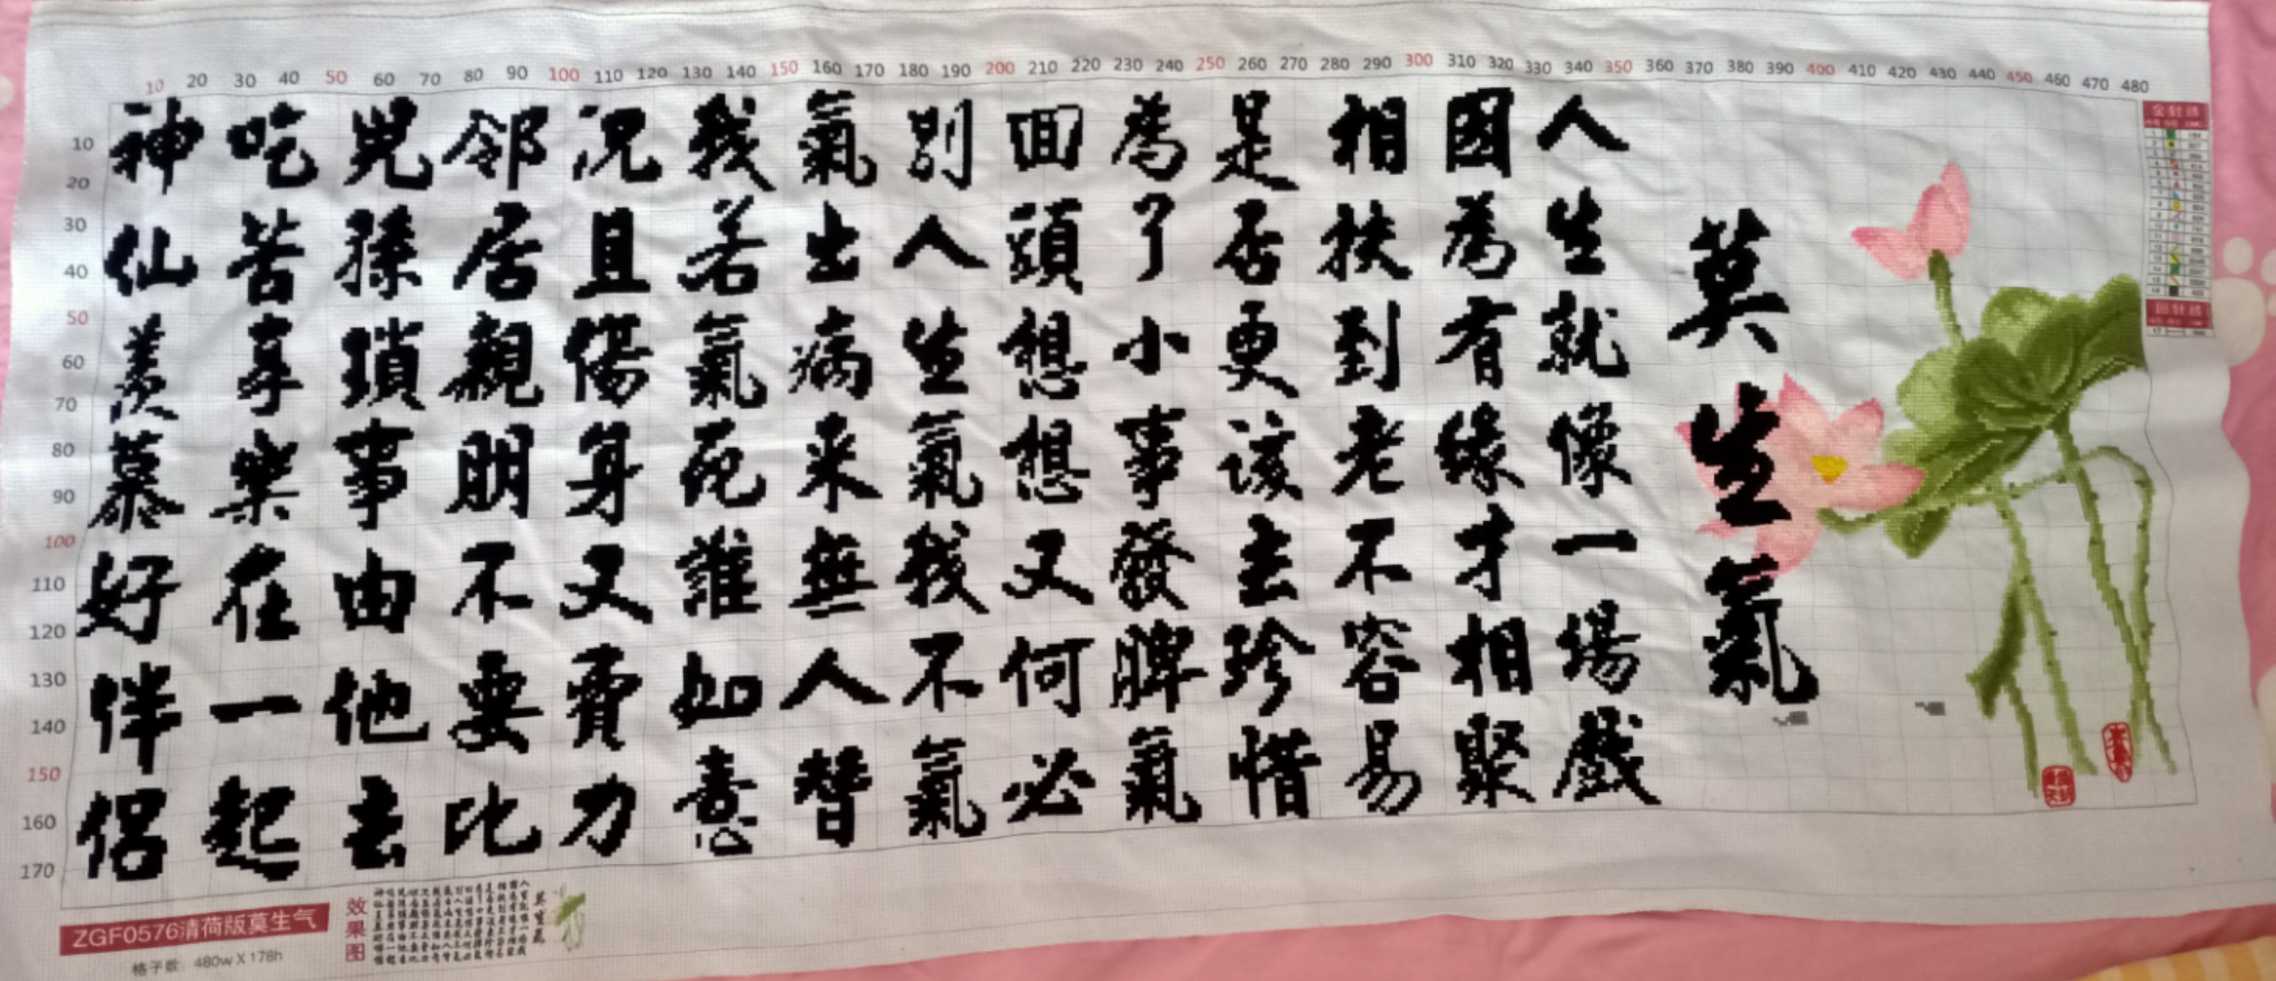 10 20 30 40 50 60 70 80 90 100 110 120 130 140 150 160 170 180 190 200 210 220 230 240 250 260 270 280 290 300 310 320 330 340 350 360 370 380 390 400 410 420 430 440 450 460 470 480
10
20
30
40
50
60
70
80
90
100
110
120
130
140
150
160
170
莫生氣
人生就像一場戲
因為有緣才相聚
相扶到老不容易
是否更该去珍惜
為了小事發脾氣
回頭想想又何必
別人生氣我不氣
氣出病来無人替
我若氣死誰如意
况且傷身又費力
邻居親朋不要比
兒孫瑣事由他去
吃苦享樂在一起
神仙羨慕好伴侶
ZGF0576清荷版莫生气
格子数：480w X 178h
效果图